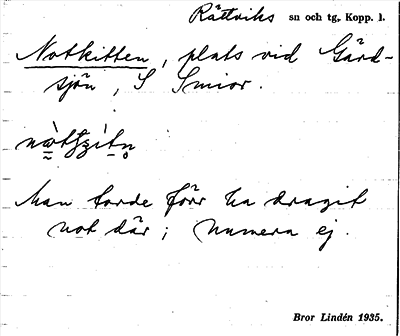 Rättviks sn och tg, Kopp. l.
Notkitten, plats vid Gärd-
sjön, S Smior.
Man torde förr ha dragit
not där; numera ej.
Bror Lindén 1935.